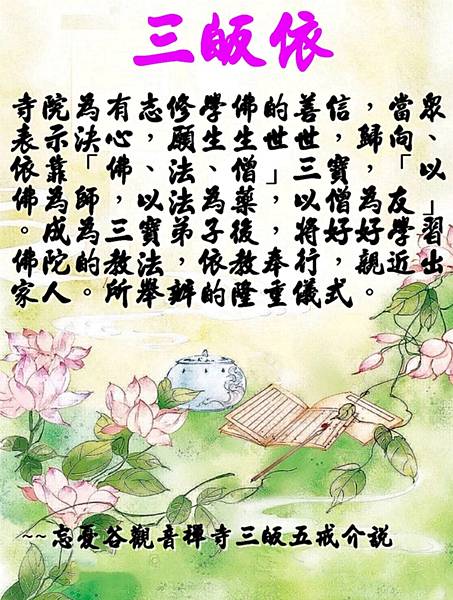 三皈依
寺院為有志修學佛的善信，當眾
表示決心，願生生世世，歸向、
依靠「佛、法、僧」三寶，「以
佛為師，以法為藥，以僧為友」
。成為三寶弟子後，將好好學習
佛陀的教法，依教奉行，親近出
家人。所舉辦的隆重儀式。
~~忘憂谷觀音禪寺三皈五戒介説